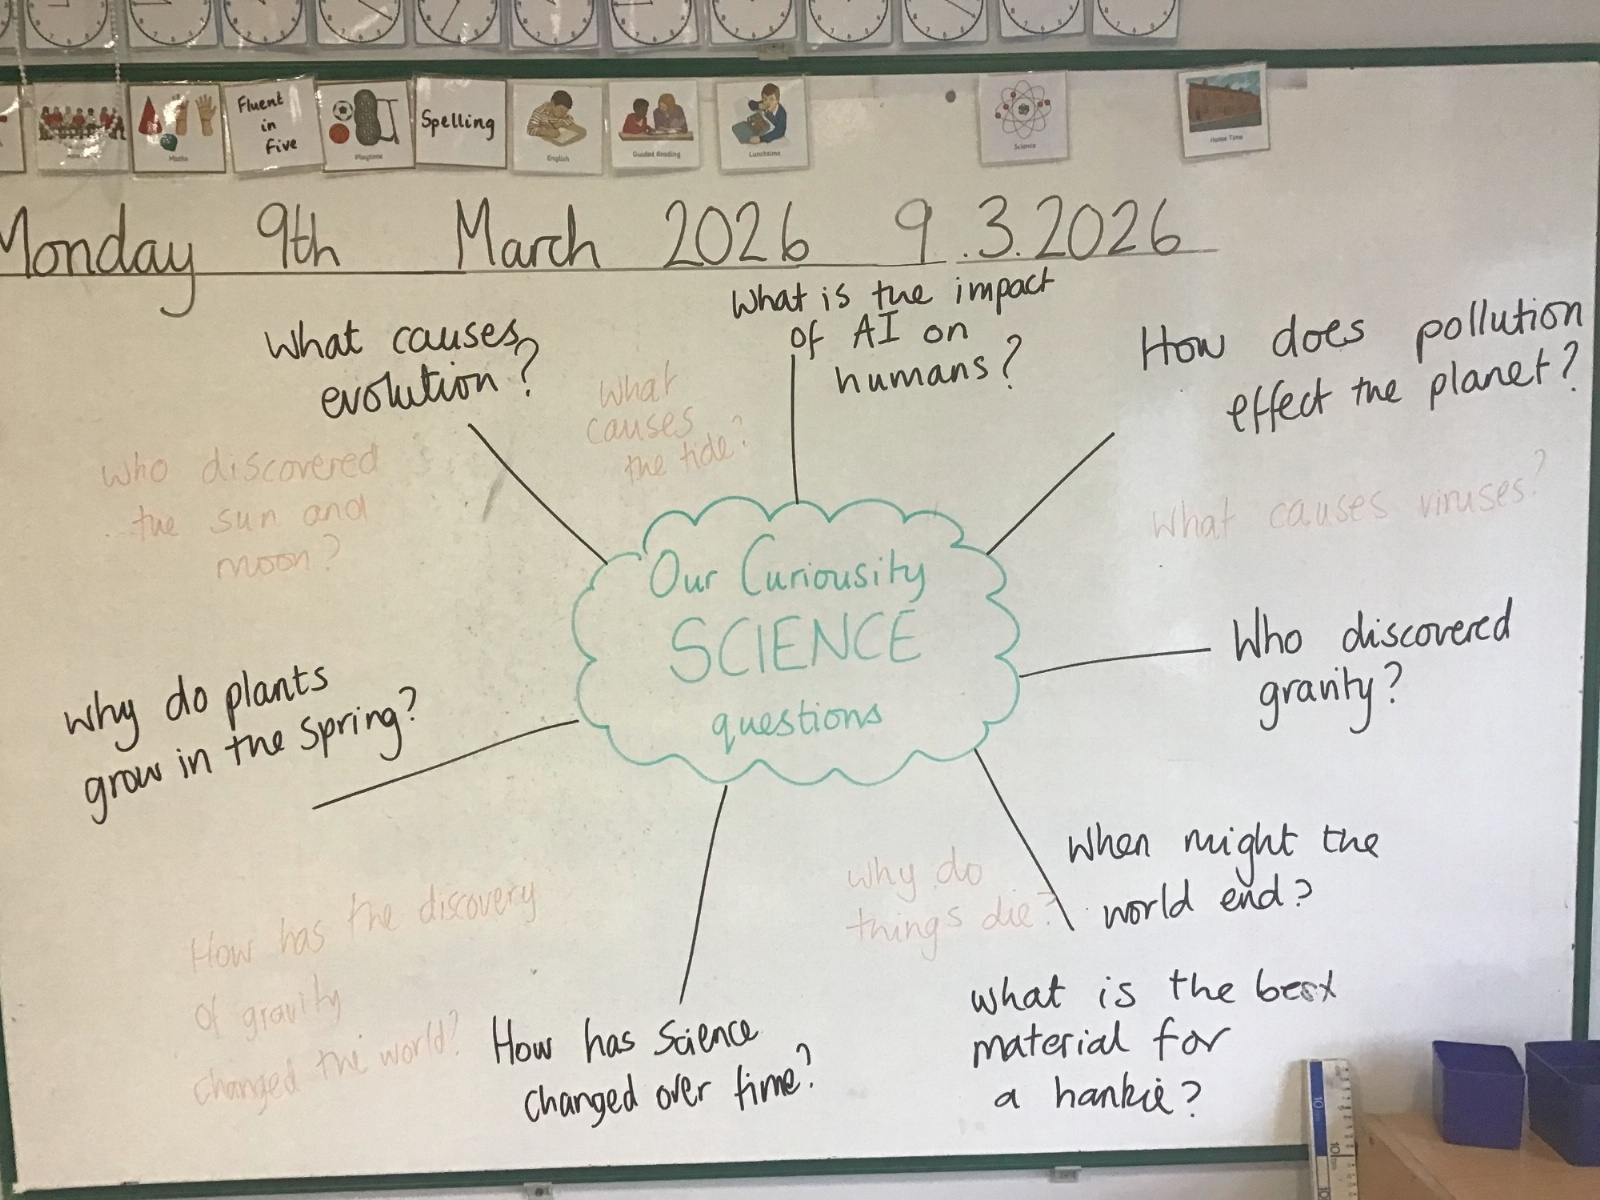 Maths
Fluent
in
Five
Playtime
Spelling
English
Guided Reading
Lunchtime
Science
Home Time
Monday 9th March 2026 9.3.2026
What causes
evolution?
What is the impact
of AI on
humans?
How does pollution
effect the planet?
What
causes
the tide?
Who discovered
the sun and
moon?
What causes viruses?
Our Curiousity
SCIENCE
questions
Who discovered
gravity?
Why do plants
grow in the Spring?
When might the
world end?
Why do
things die?
How has the discovery
of gravity
changed the world?
How has Science
changed over time?
what is the best
material for
a hankie?